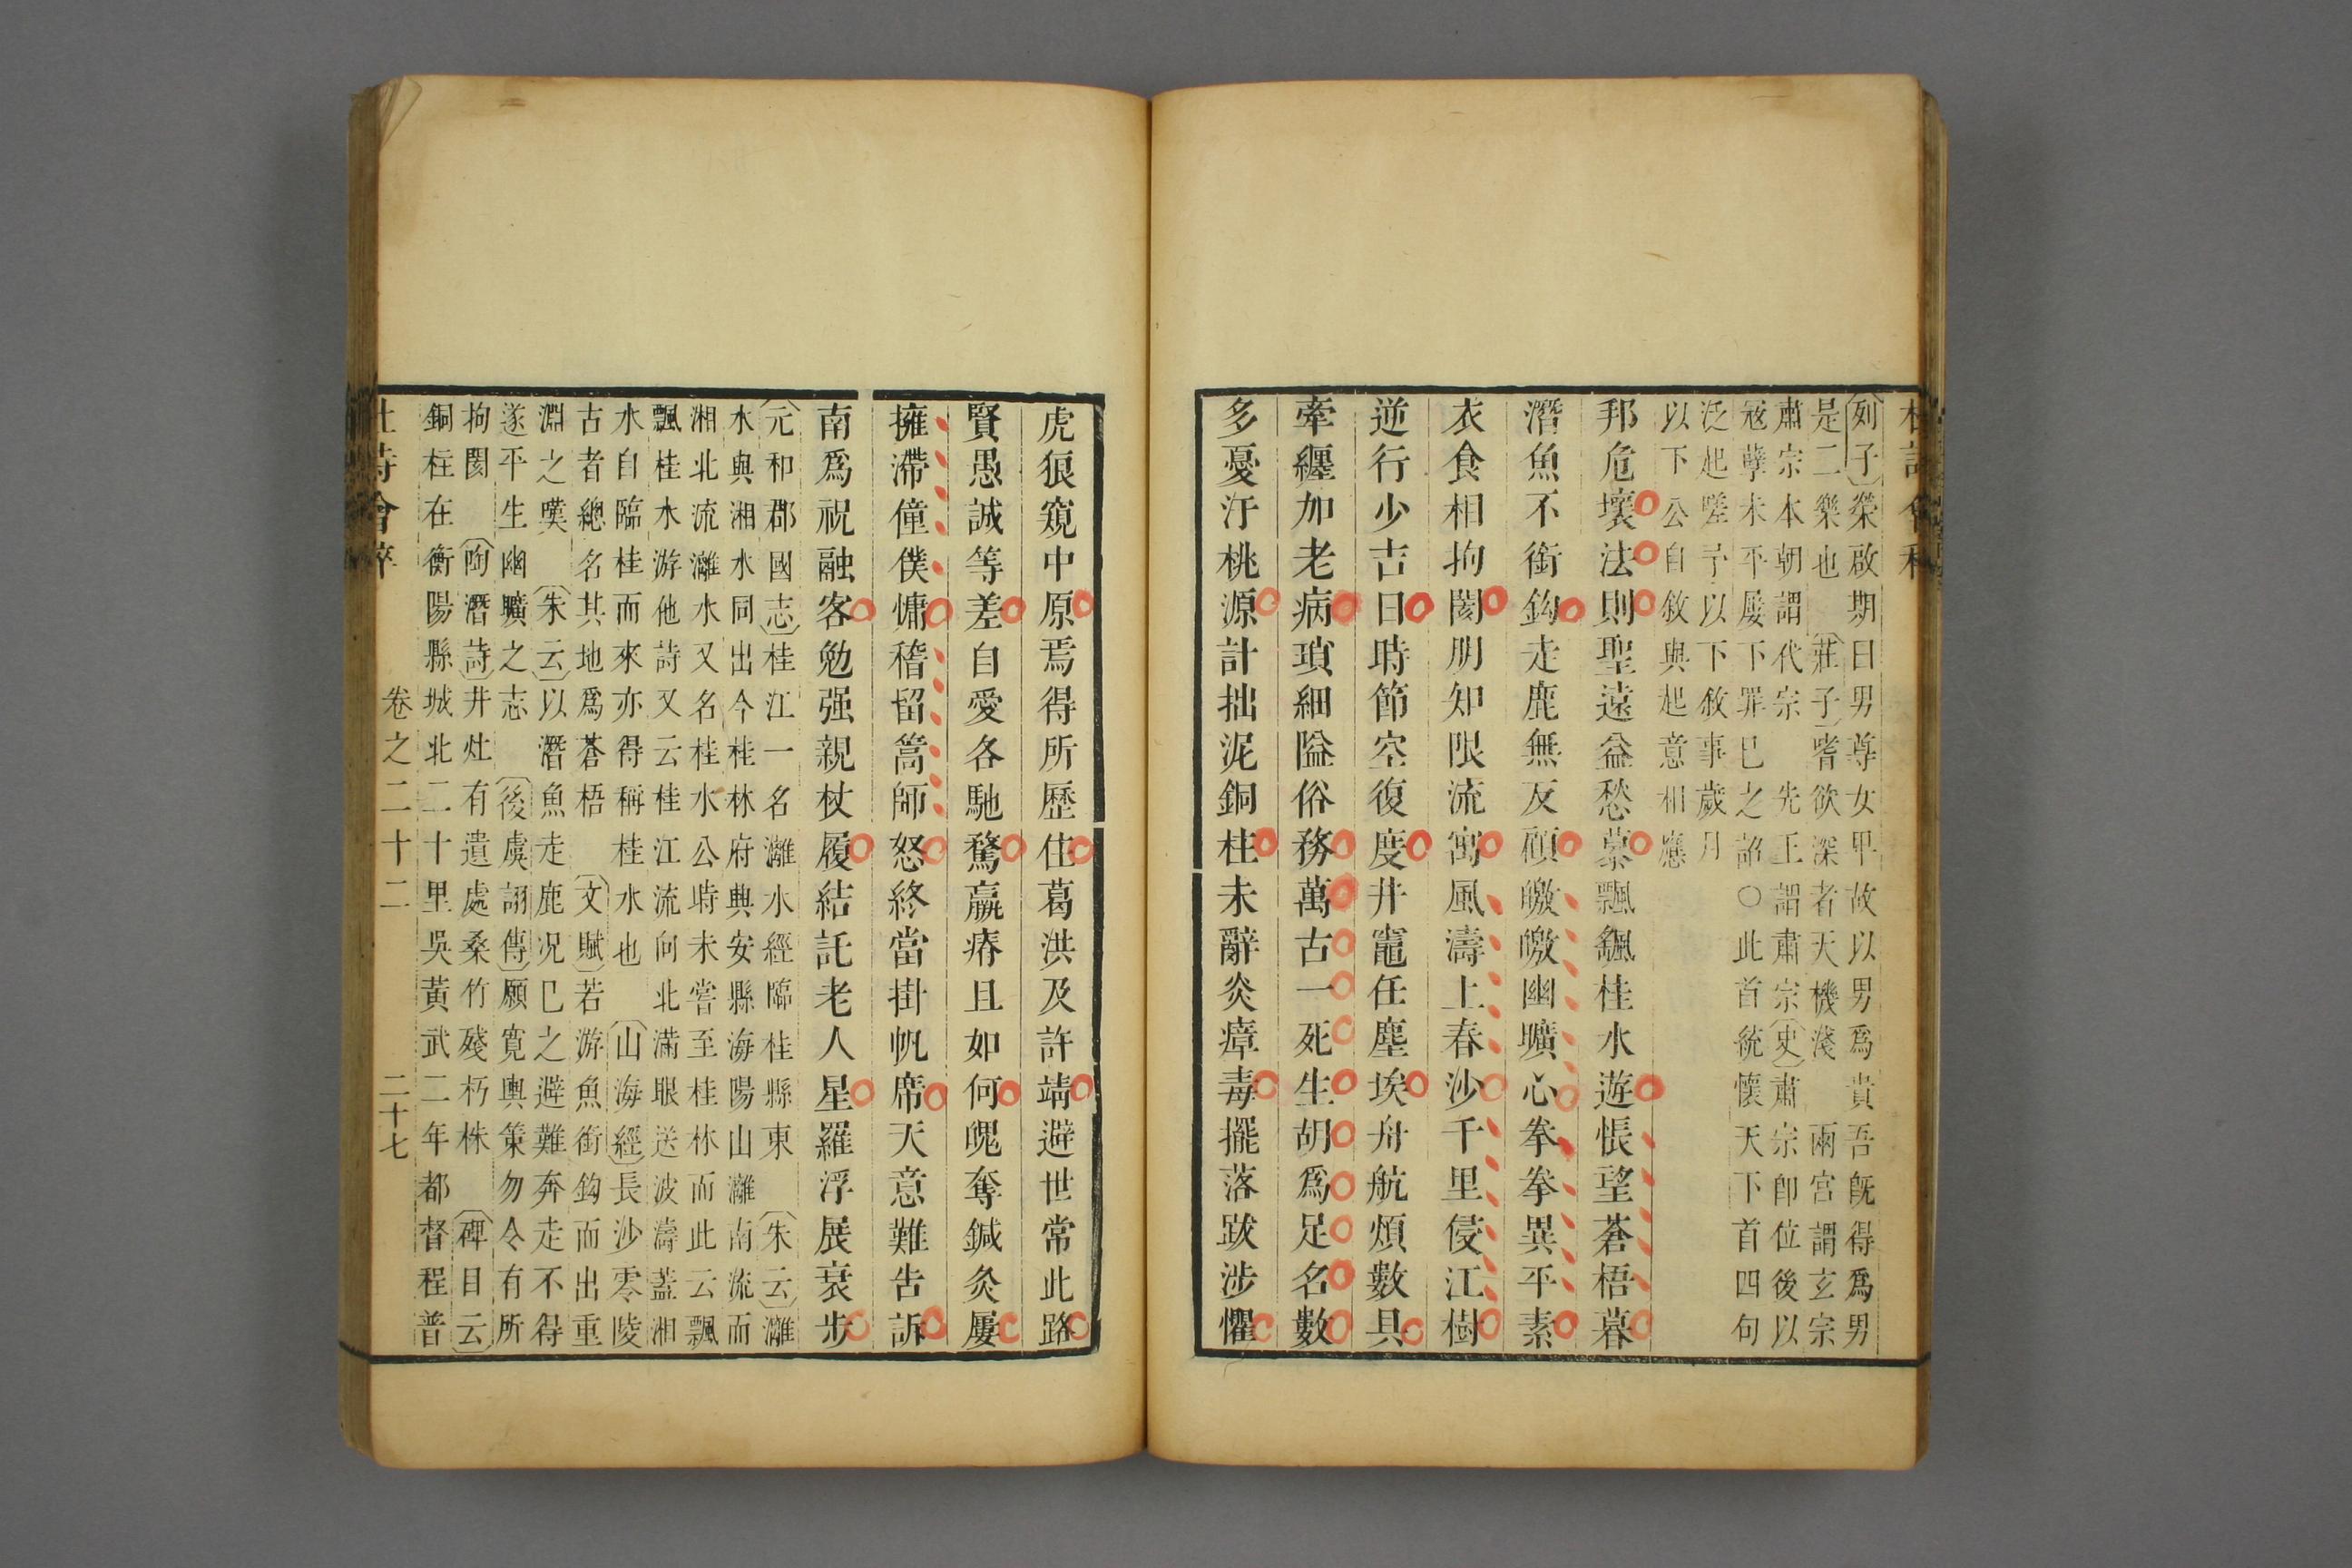 列子榮啟期曰男尊女卑故以男爲貴吾既得爲男
是二樂也莊子嗜欲深者天機淺兩宮謂玄宗
肅宗本朝謂代宗先王謂肅宗史肅宗卽位後以
寇孽未平屡下罪已之詔○此首統懷天下首四句
泛起嗟予以下敘事歲月
以下公自敘與起意相應
邦危壞法則聖遠益愁慕飄飄桂水遊悵望蒼梧暮
潛魚不銜鈎走鹿無反顧皦皦幽曠心拳拳異平素
衣食相拘閡朋知限流寓風濤上春沙千里侵江樹
逆行少吉日時節空復度井竈任塵埃舟航煩數具
牽纏加老病瑣細隘俗務萬古一死生胡爲足名數
多憂汙桃源計拙泥銅柱未辭炎瘴毒擺落跋涉懼
虎狼窺中原焉得所歷住葛洪及許靖避世常此路
賢愚誠等差自愛各馳騖羸瘠且如何魄奪鍼灸屢
擁滯僮僕慵稽留篙師怒終當掛帆席天意難告訴
南爲祝融客勉强親杖履結託老人星羅浮展衰步
元和郡國志桂江一名灕水經臨桂縣東朱云灕
水與湘水同出今桂林府興安縣海陽山灕南流而
湘北流灕水又名桂水公時未嘗至桂林而此云飄
飄桂水游他詩又云桂江流向北滿眼送波濤蓋湘
水自臨桂而來亦得稱桂水也山海經長沙零陵
古者總名其地爲蒼梧文賦若游魚銜鈎而出重
淵之嘆朱云以潛魚走鹿况已之避難奔走不得
遂平生幽曠之志後虞詡傳願寬輿策勿令有所
拘閡陶潛詩井灶有遺處桑竹殘朽株碑目云
銅柱在衡陽縣城北二十里吳黃武二年都督程普
杜詩會稡
卷之二十二
二十七